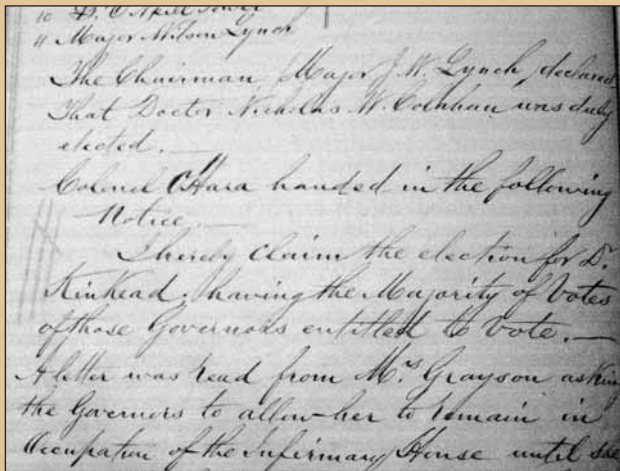 10 Dr. O'Neill Power
11 Major Wilson Lynch
The Chairman (Major J. W. Lynch) declared
That Doctor Nicholas W. Colahan was duly
elected. —
Colonel O'Hara handed in the following
Notice. —
I hereby claim the election for Dr.
Kinkead, having the Majority of Votes
of those Governors entitled to Vote. —
A letter was read from Mrs. Grayson asking
the Governors to allow her to remain in
Occupation of the Infirmary House until she